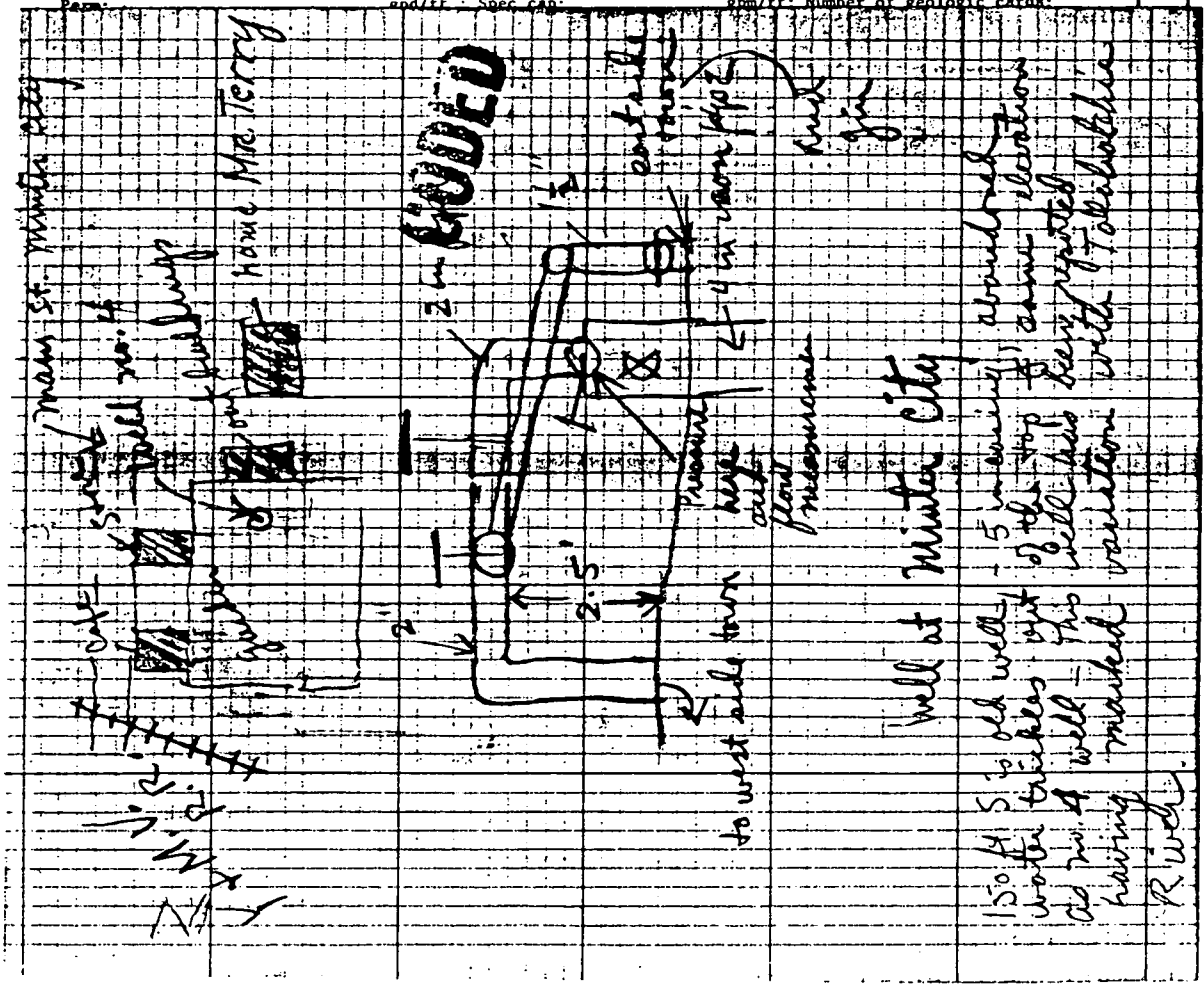 Perm: gpd/ft²; Spec cap: gpm/ft; Number of geologic cards:
Main St. Minter City
Cafe
Stores
Well no. 4
out buildings
home Mr. Terry
garden
N
2 in
CODED
1½"
2"
2.5'
east side
town
and
gin
4 in iron pipe
Pressure
head
and
flow
measurements
to west side town
Well at Minter City
150 ft S is old well, - 5 in casing, abandoned
water trickles out of the top at same elevation
as no. 4 well - This well has been reported
having marked variation with Tallahatchie
River